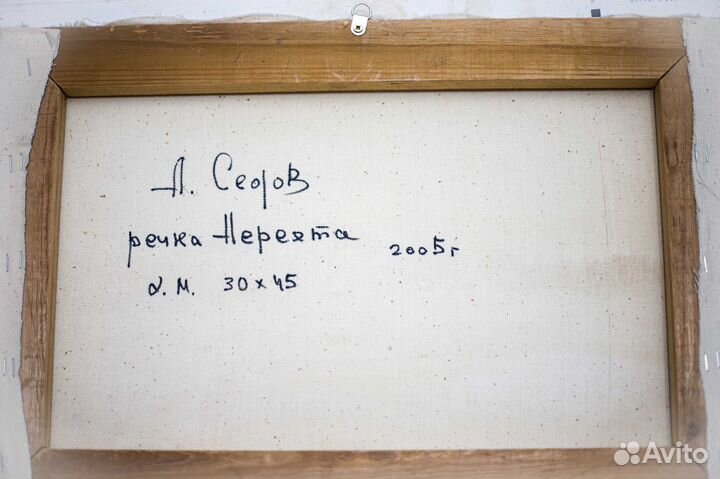 А. Седов
речка Нерехта 2005г
х.м. 30×45
Avito